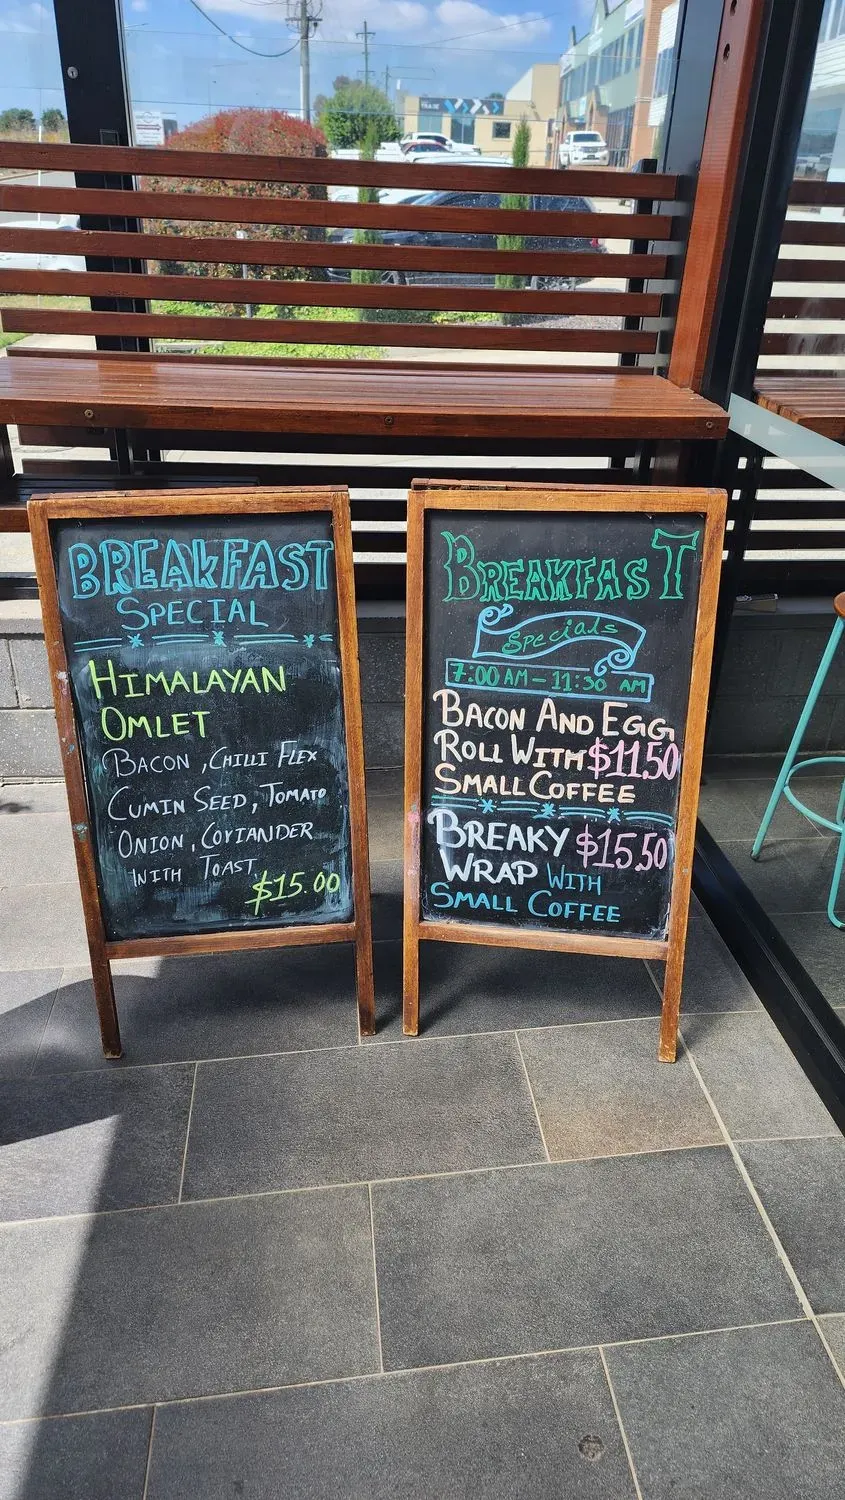 BREAKFAST
SPECIAL
HIMALAYAN
OMLET
BACON , CHILLI FLEX
CUMIN SEED, TOMATO
ONION, CORIANDER
WITH TOAST
$15.00
BREAKFAST
Specials
7:00 AM - 11:30 AM
BACON AND EGG
ROLL WITH $11.50
SMALL COFFEE
BREAKY $15.50
WRAP WITH
SMALL COFFEE